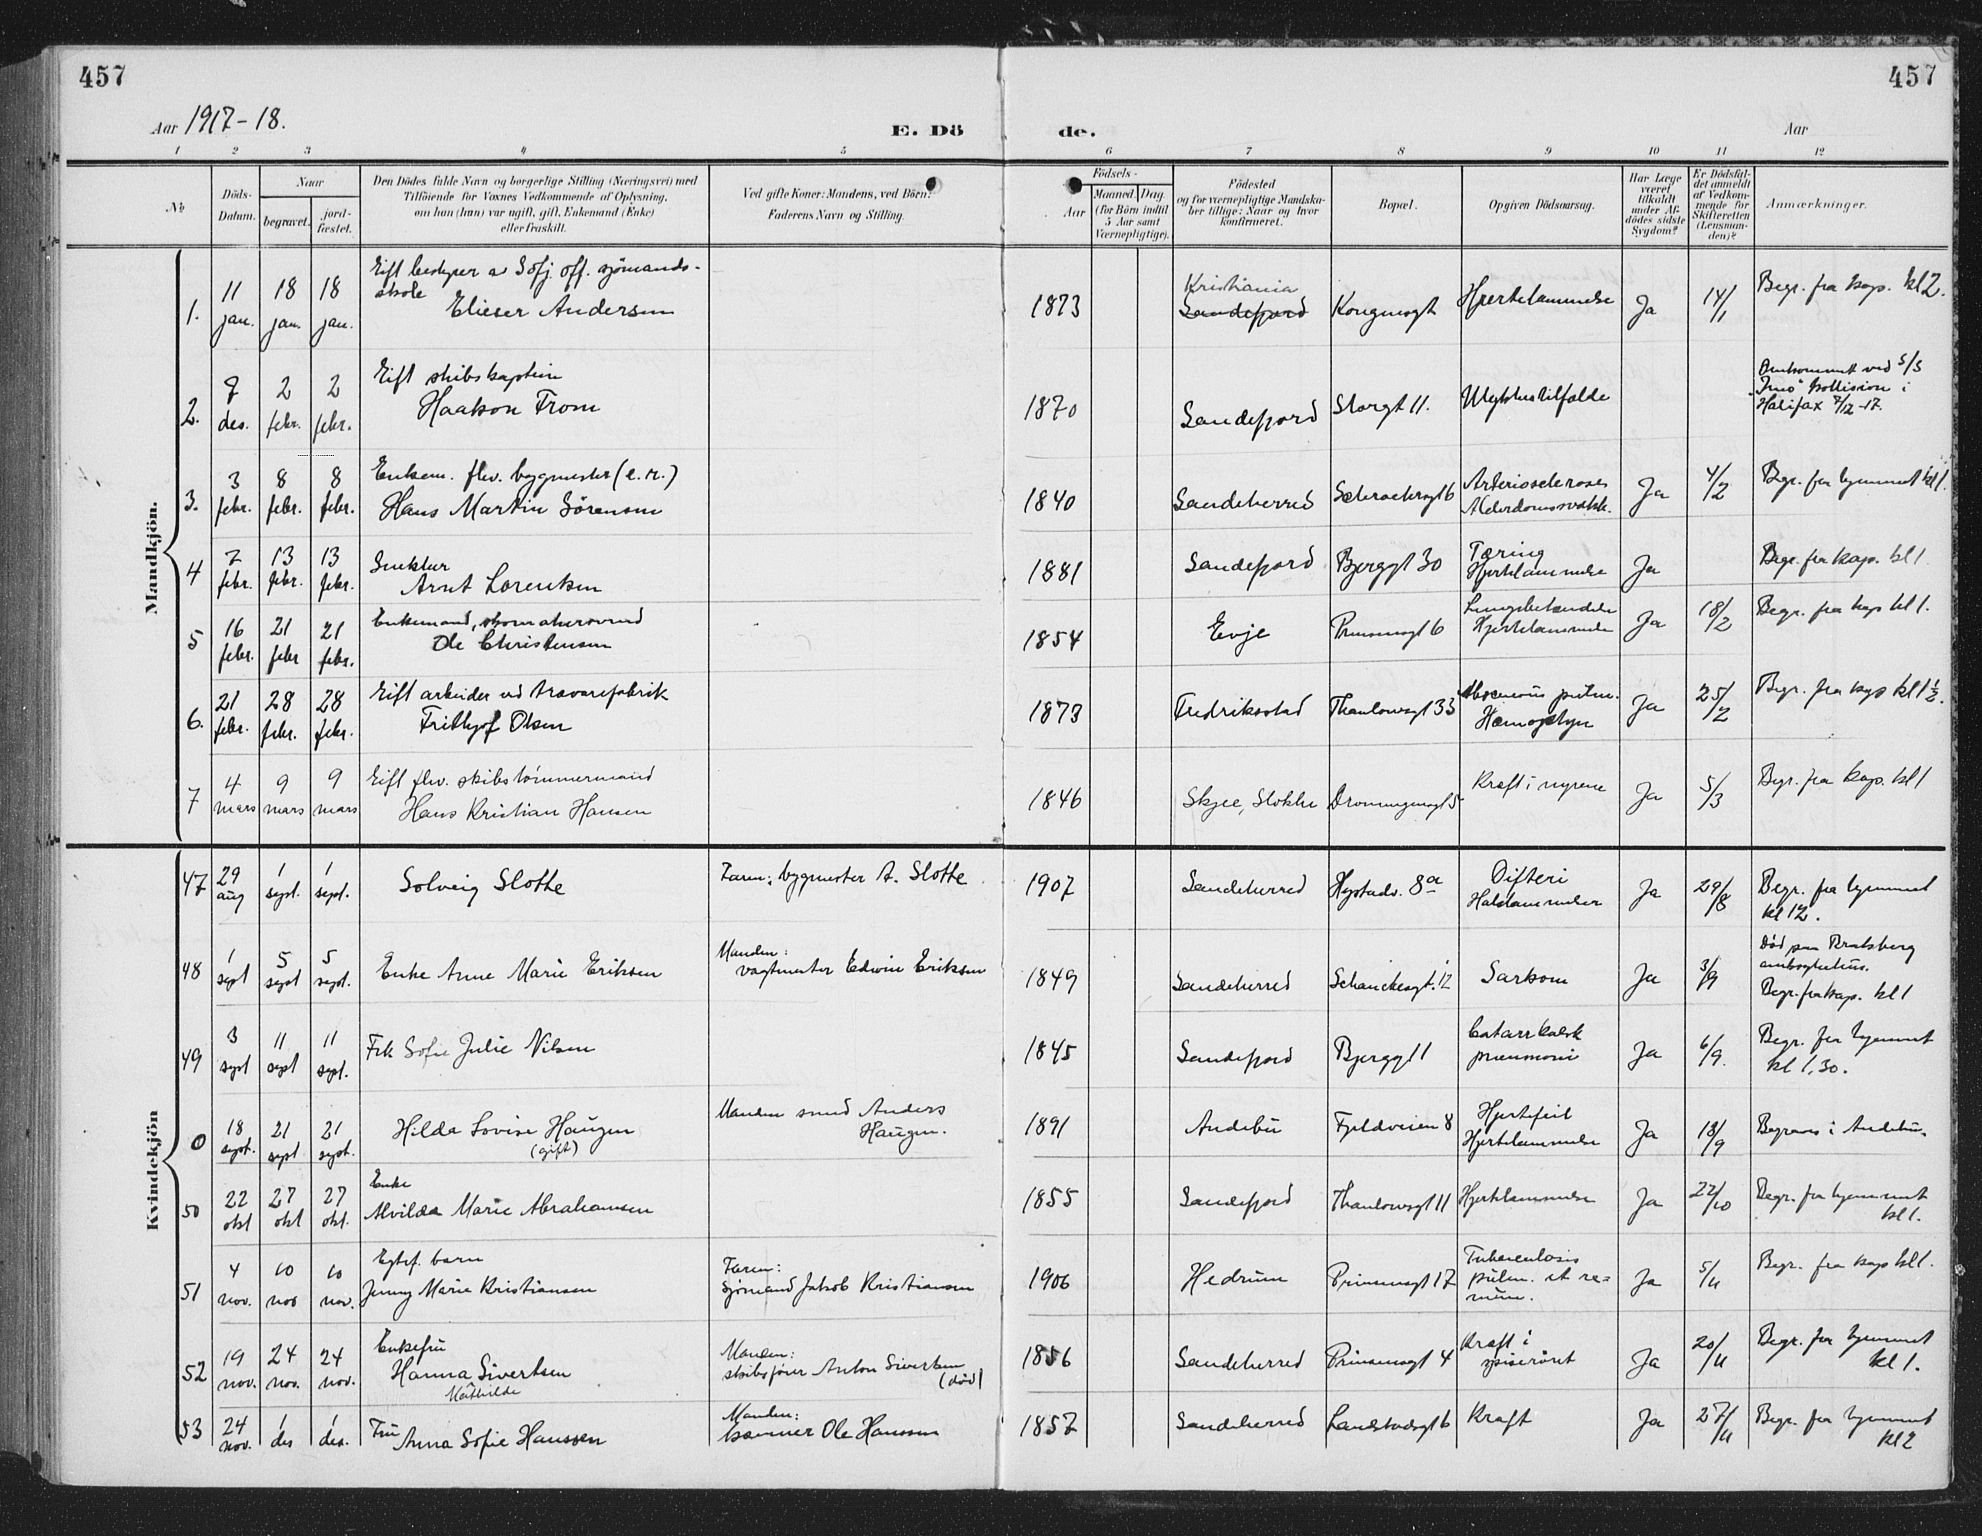 457
457
Aar 1917-18.
E. Dö
de.
Aar
1 2 3 4 5 6 7 8 9 10 11 12
No
Döds-
Datum.
Naar
begravet.
jord-
fæstet.
Den Dödes fulde Navn og borgerlige Stilling (Næringsvei) med
Tilföiende for Voxnes Vedkommende af Oplysning,
om han (hun) var ugift, gift, Enkemand (Enke)
eller fraskilt.
Ved gifte Koner: Mandens, ved Börn:
Faderens Navn og Stilling.
Födsels-
Aar
Maaned.
Dag.
(for Börn indtil
5 Aar samt
Værnepligtige).
Födested
og for værnepligtige Mandska-
ber tillige: Naar og hvor
konfirmeret.
Bopæl.
Opgiven Dödsaarsag.
Har Læge
været
tilkaldt
under Af-
dödes sidste
Sygdom?
Er Dödsfal-
det anmeldt
af Vedkom-
mende for
Skifteretten
(Lensman-
den)?
Anmærkninger.
Mandkjön.
1. 11 jan. 18 jan. 18 jan. Gift bestyrer av Sofj. off. sjömands-
skole
Elieser Andersen 1873 Kristiania
Sandefjord Kongensgt Hjertelammelse Ja 14/1 Begr. fra kap. kl 2.
2. 7 des. 2 febr. 2 febr. Gift skibskaptein
Haakon From 1870 Sandefjord Storgt 11. Ulykkestilfælde Omkommet ved S/S
"Imo" kollision i
Halifax 7/12-17.
3. 3 febr. 8 febr. 8 febr. Enkem. flv. bygmester (e. m.)
Hans Martin Sörensen 1840 Sandeherred 6 Arteriosclerose
Alderdomssvakh. Ja 4/2 Begr. fra hjemmet kl 1.
4 7 febr. 13 febr. 13 febr. Snekker
Arnt Lorentsen 1881 Sandefjord Bjerggt 30 Tæring
Hjertelammelse Ja Begr. fra kap. kl 1
5 16 febr. 21 febr 21 febr. Enkemand, skomakersvend
Ole Christensen 1854 Evje Prinsensgt 6 Lungebetændelse
Hjertelammelse Ja 18/2 Begr. fra kap kl 1.
6. 21 febr. 28 febr. 28 febr. Gift arbeider ved travarefabrik
Frithjof Olsen 1873 Fredriksstad Thaulowsgt 33 pulm.
Hæmoptyse Ja 25/2 Begr. fra kap kl 1½.
7 4 mars 9 mars 9 mars Gift flv. skibstömmermand
Hans Kristian Hansen 1846 Skjee, Stokke Dronningensgt 5 Kræft i nyrene Ja 5/3 Begr. fra kap. kl 1
Kvindekjön
47 29 aug 1 sept. 1 sept. Solveig Slotte Faren: bygmester A. Slotte 1907 Sandeherred Hystadv. 8a Difteri
Halslammelse Ja 29/8 Begr. fra hjemmet
kl 12.
48 1 sept 5 sept 5 sept. Enke Anne Marie Eriksen Manden:
vagtmester Edwin Eriksen 1849 Sandeherred Schanckesgt. 12 Sarkom Ja 3/9 Död paa Bratsberg
amtssykehus.
Begr. fra kap. kl 1
49 3 sept 11 sept 11 sept. Frk Sofie Julie Nilsen 1845 Sandefjord Bjerggt 1 Catarrhalsk
pneumoni Ja 6/9. Begr. fra hjemmet
kl 1.30.
0 18 sept. 21 sept 21 sept. Hilda Lovise Haugen
(gift) Manden smed Anders
Haugen. 1891 Andebu Fjeldveien 8 Hjertefeil
Hjertelammelse Ja 18/9 Begraves i Andebu.
50 22 okt 27 okt 27 okt. Enke
Alvilda Marie Abrahamsen 1855 Sandefjord Thaulowsgt 11 Hjertelammelse Ja 22/10 Begr. fra hjemmet
kl 1.
51 4 nov. 10 nov 10 nov. Egtef. barn
Jenny Marie Kristiansen Faren:
Sjömand Jakob Kristiansen 1906 Hedrum Prinsensgt 17 Tuberculosis
pulm. et re-
num. Ja 5/11 Begr. fra kap kl 1.
52 19 nov. 24 nov. 24 nov. Enkefru
Hanna Sivertsen
Mathilde Manden:
skibsförer Anton Sivertsen
(död) 1856 Sandeherred Prinsensgt 4 Kræft i
spiserörit Ja 20/11 Begr. fra hjemmet
kl 1.
53 24 nov. 1 des 1 des. Fru
Anna Sofie Hanssen Manden:
Ole Hanssen 1857 Sandeherred Landstadsgt 6 Kræft Ja 27/11 Begr. fra hjemmet
kl 2